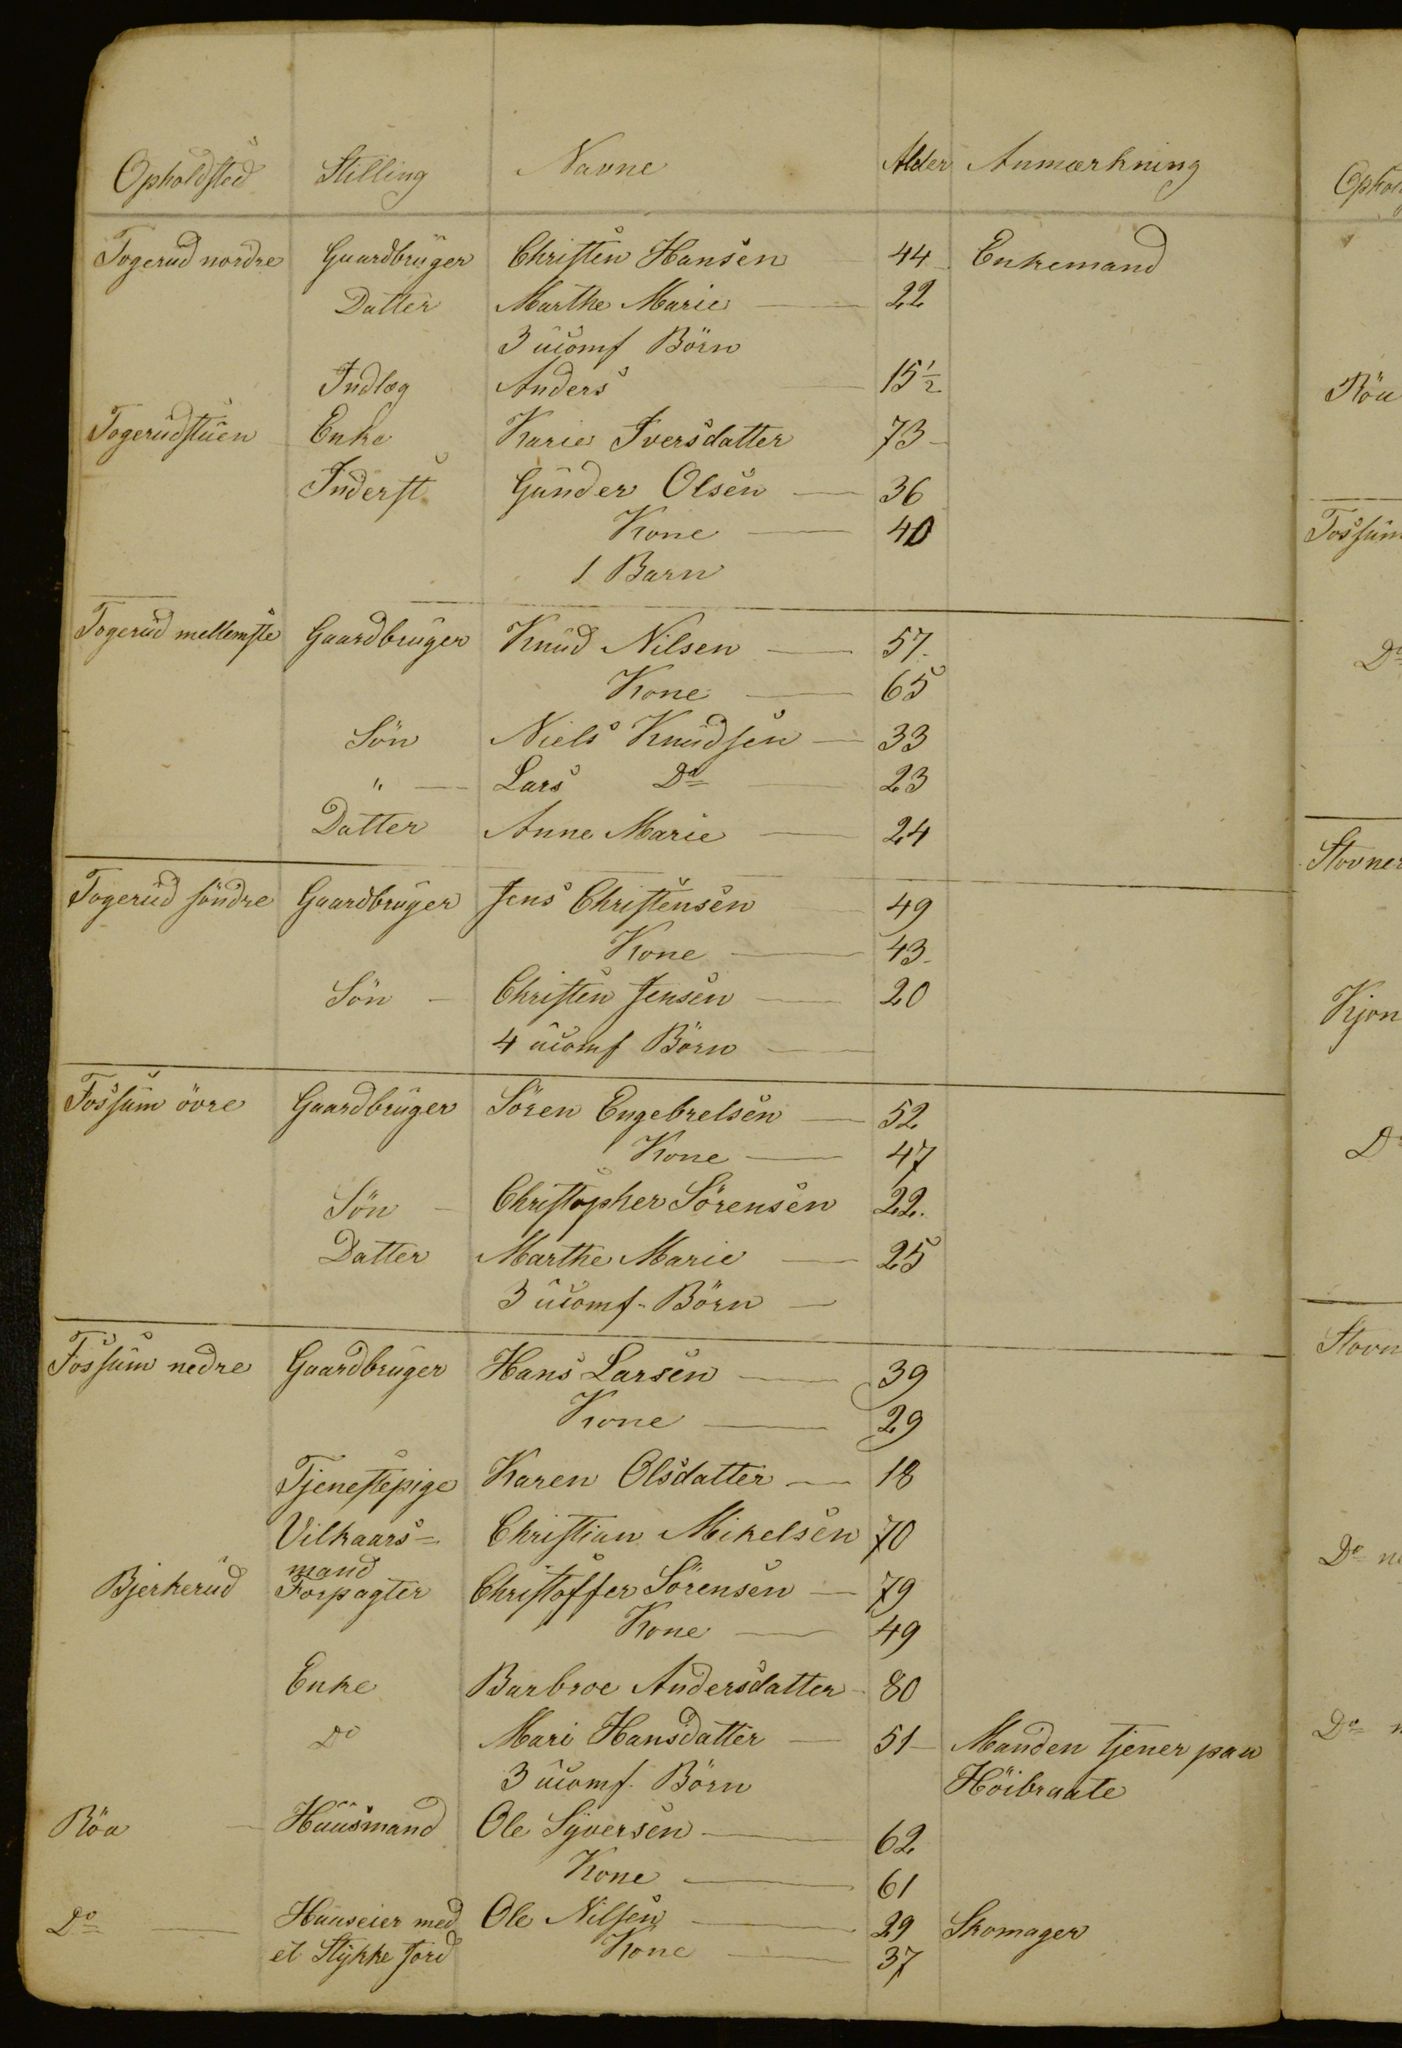 Opholdsted Stilling Navne Alder Anmærkning
Togerud nordre Gaardbruger Christen Hansen 44 Enkemand
Datter Marthe Marie — 22
3 ucomf Börn
Indlæg Anders — 15 1/2
Togerudstuen Enke Karie Iversdatter 73 -
Inderst Gunder Olsen — 36
Kone — 40
1 Barn
Togerud mellemste Gaardbruger Knud Nilsen — 57.
Kone — 65
Sön Niels Knudsen — 33
" — Lars Do — 23
Datter Anne Marie — 24
Togerud söndre Gaardbruger Jens Christensen 49
Kone — 43.
Sön - Christen Jensen — 20
4 ucomf Börn —
Fossum övre Gaardbruger Sören Engebretsen — 52
Kone — 47
Sön - Christopher Sörensen 22.
Datter Marthe Marie — 25
3 ucomf. Börn —
Fossum nedre Gaardbruger Hans Larsen — 39
Kone — 29
Tjenestepige Karen Olsdatter — 18
Vilkaars= Christian Mikelsen 70
mand
Bjerkerud Forpagter Christoffer Sörensen — 79
Kone — 49
Enke Barbroe Andersdatter - 80
Do Mari Hansdatter — 51 — Manden tjener paa
3 ucomf. Börn Höibraate
Röa — Huusmand Ole Syversen — 62
Kone — 61
Do — Huuseier med Ole Nilsen — 29 Skomager
et Stykke Jord Kone — 37
Ophol
Röa
Fossum
Do
Stovner
Kjon
Do
Stovn
Do ne
Do n